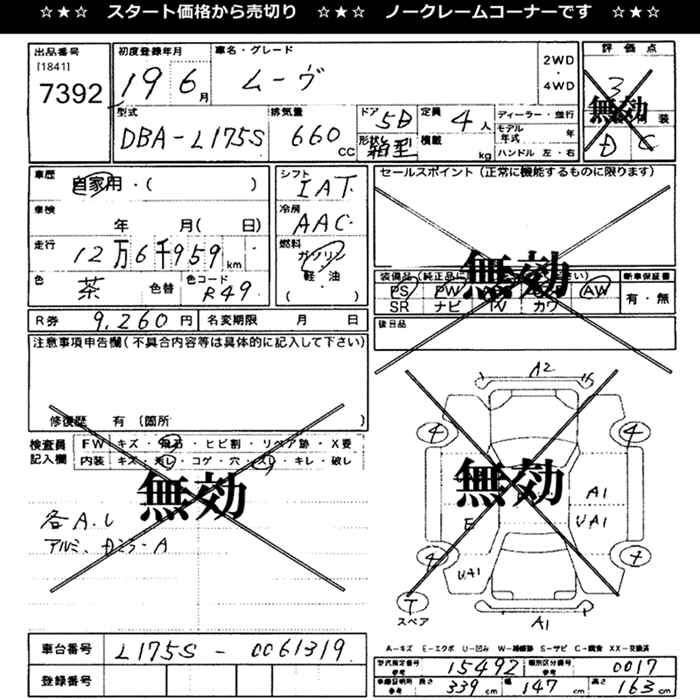 ☆★☆ スタート価格から売切り ☆★☆ ノークレームコーナーです ☆★☆
出品番号 初度登録年月 車名・グレード 2WD・4WD 評価点
[1841]
7392 19 6月 ムーヴ 3
無効
型式 排気量 ドア 定員 ディーラー・並行
DBA-L175S 660 CC 5D 4人 モデル年式 年 D C
形状 箱型 積載 kg ハンドル 左・右
車歴 自家用・( ) シフト セールスポイント(正常に機能するものに限ります)
IAT
車検 年 月( 日) 冷房 AAC
走行 12万6千959km 燃料 ガソリン 軽・油 ( )
無効
色 茶 色替 色コード R49
装備品(純正品に 新車保証書
PS PW AW 有・無
SR ナビ TV カワ
R券 9,260円 名変期限 月 日 後日品
注意事項申告欄(不具合内容等は具体的に記入して下さい)
修復歴 有(箇所 )
検査員記入欄 FW キズ・飛石・ヒビ割・リペア跡・X要
内装 キズ・汚レ・コゲ・穴・スレ・キレ・破レ
無効
各A.U
アルミ、
A2
4 4
無効
A1
E UA1
4 4
UA1
T
スペア
A1
車台番号 L175S-0061319
登録番号
A-キズ E-エクボ U-凹み W-補修跡 S-サビ C-腐食 XX-交換済
型式指定番号 参考 15492 類別区分番号 参考 0017
車検証明所 参考 長さ 339cm 幅 147cm 高さ 163cm